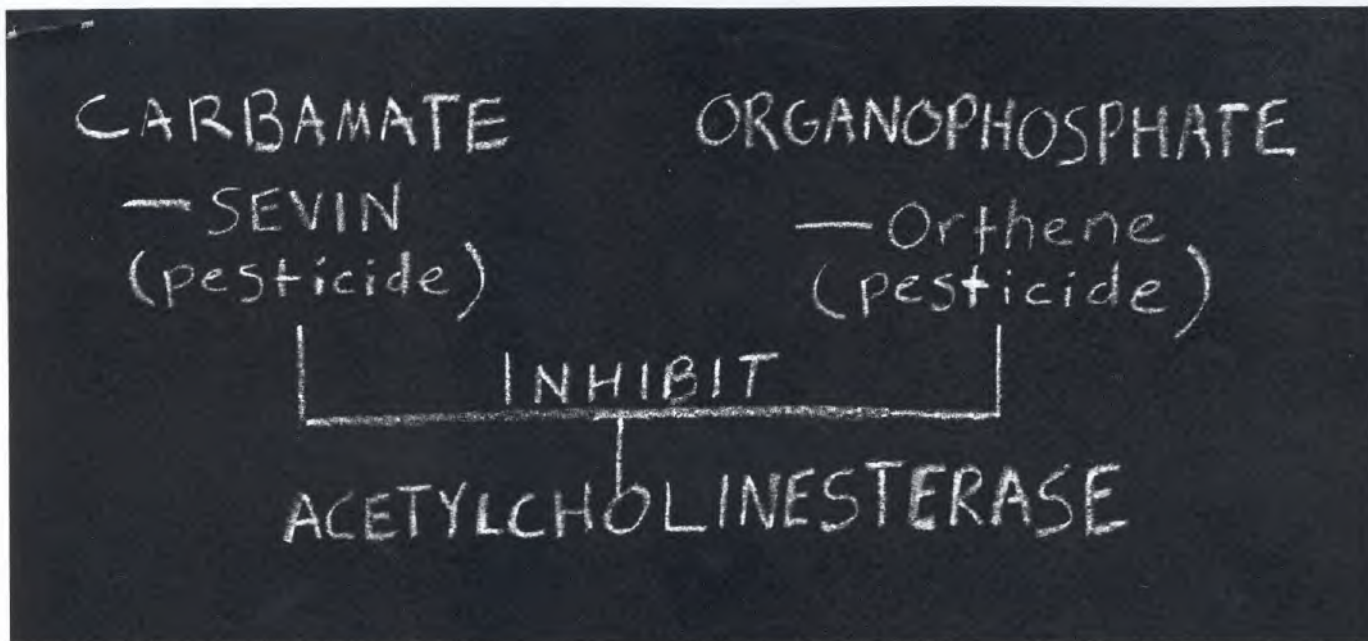 CARBAMATE
— SEVIN
(pesticide)
ORGANOPHOSPHATE
— Orthene
(pesticide)
INHIBIT
ACETYLCHOLINESTERASE